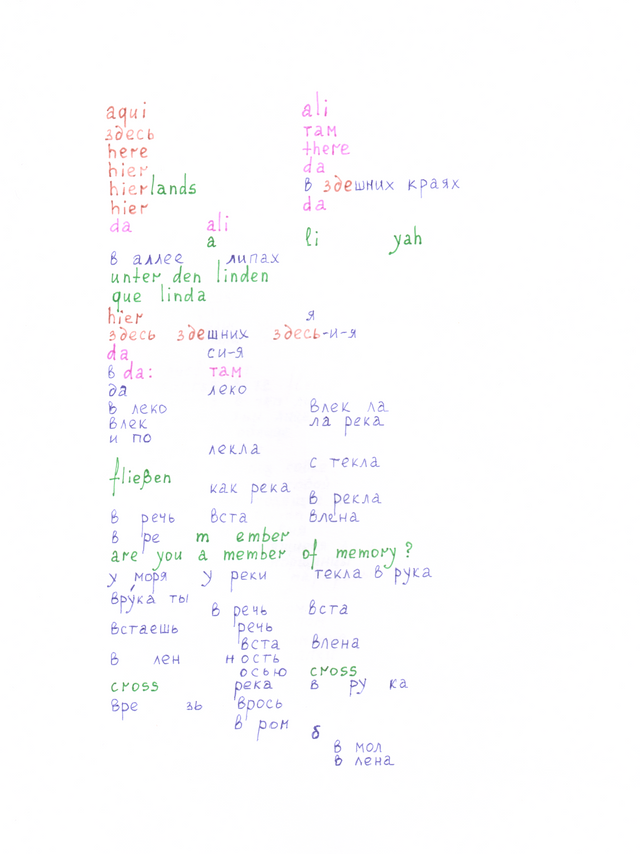 aqui ali
здесь там
here there
hier da
hierlands в здешних краях
hier da
da ali
а li yah
в аллее липах
unter den linden
que linda
hier я
здесь здешних здесь-и-я
da си-я
в da: там
да леко
в леко влек ла
влек ла река
и по
лекла
с текла
fließen
как река
в рекла
в речь вста влена
в ре m ember
are you a member of memory?
у моря у реки текла в рука
вру́ка ты
в речь вста
встаешь речь
вста влена
в лен ность
осью cross
cross река в ру ка
вре зь врось
в ром б
в мол
в лена